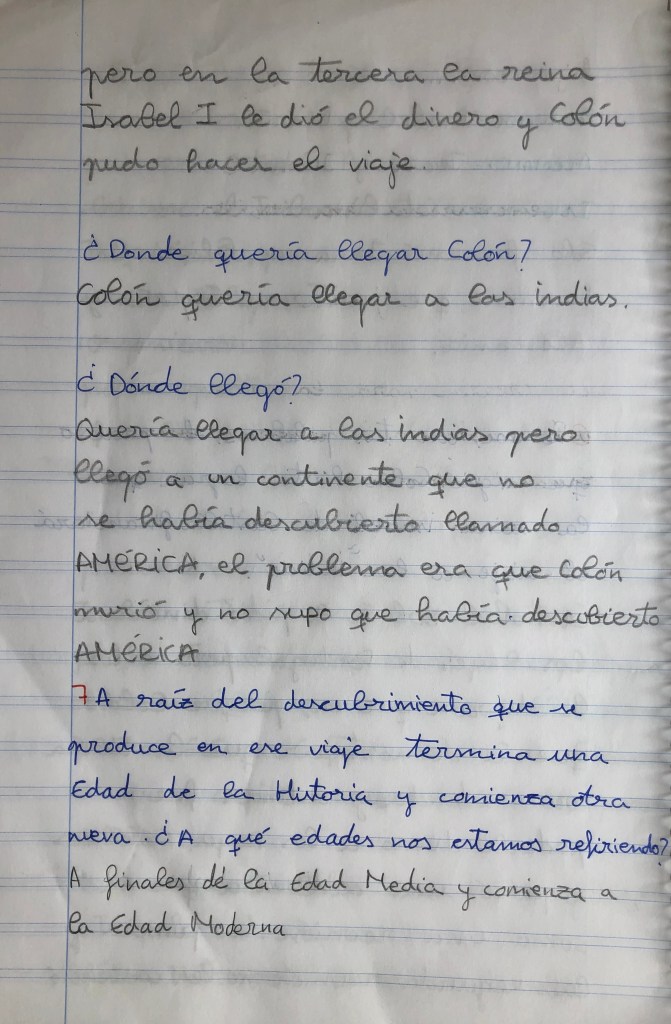 pero en la tercera la reina
Isabel I le dió el dinero y Colón
pudo hacer el viaje.
¿Donde quería llegar Colón?
Colón quería llegar a las indias.
¿Dónde llegó?
Quería llegar a las indias pero
llegó a un continente que no
se había descubierto llamado
AMÉRICA, el problema era que Colón
murió y no supo que había descubierto
AMÉRICA
7 A raíz del descubrimiento que se
produce en ese viaje termina una
Edad de la Historia y comienza otra
nueva. ¿A qué edades nos estamos refiriendo?
A finales de la Edad Media y comienza a
la Edad Moderna